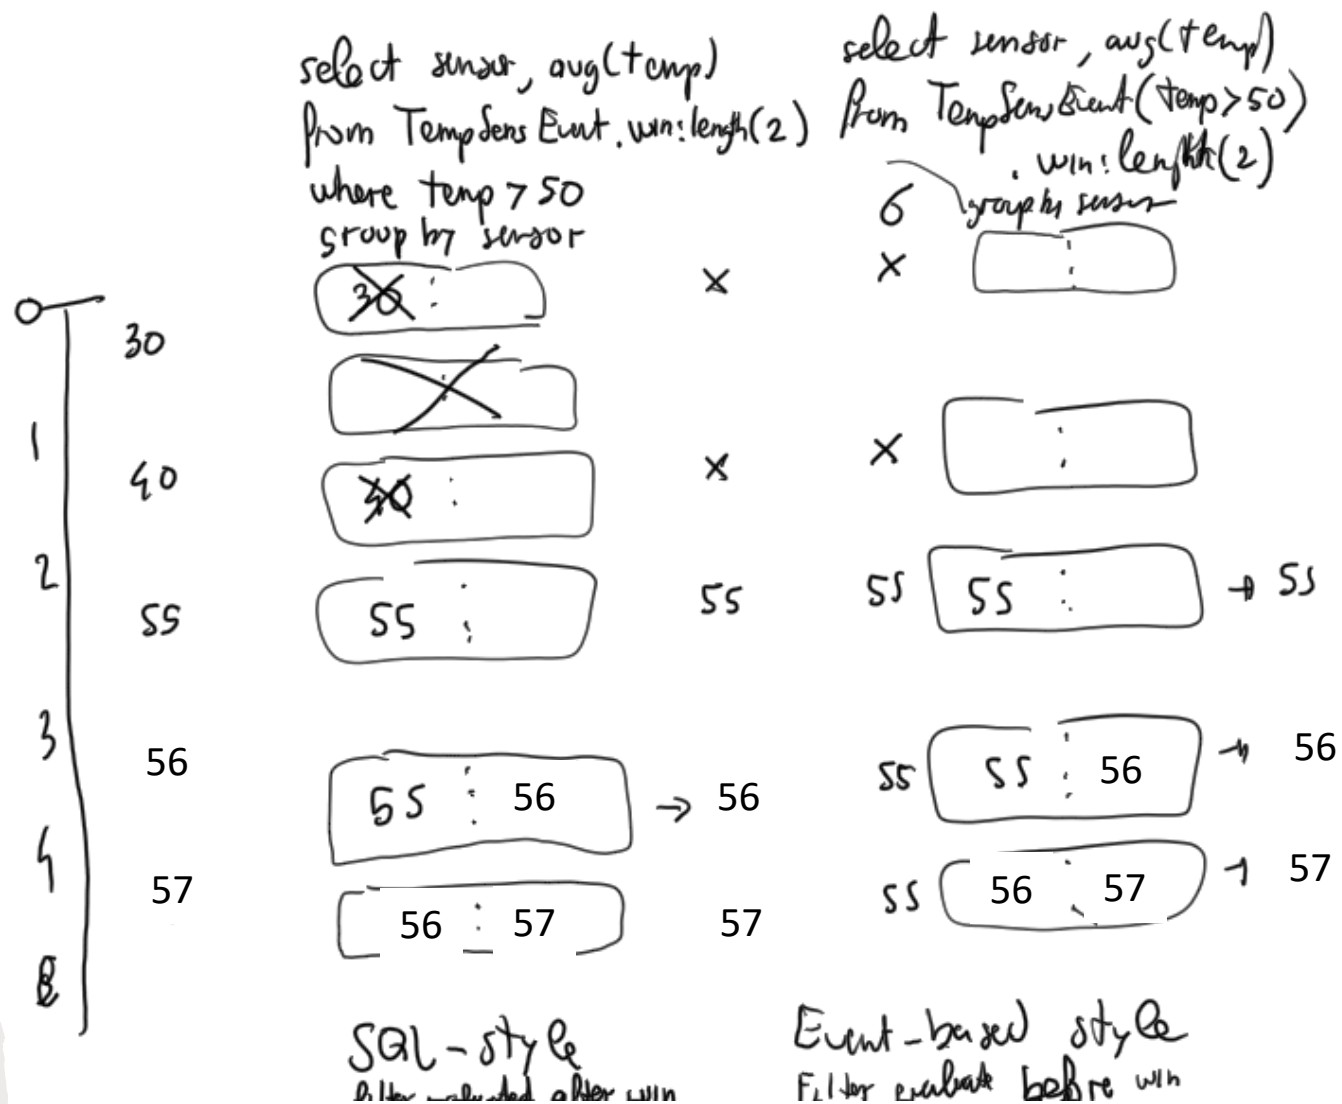 select sensor, avg(temp)
from TempSensEvent.win:length(2)
where temp > 50
group by sensor
select sensor, avg(temp)
from TempSensEvent(temp>50)
.win:lenghth(2)
6
group by sensor
30
x
x
30
1
40
x
x
40
2
55
55
55
55
55
→ 55
3
56
55 56
→ 56
55
55 56
→ 56
4
57
56 57
57
55
56 57
→ 57
SQL-style
filter evaluated after win
Event-based style
Filter evaluate before win